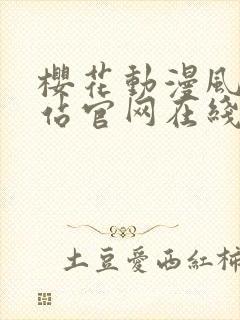 櫻花動漫風
佔官网在綫
土豆愛西紅柿